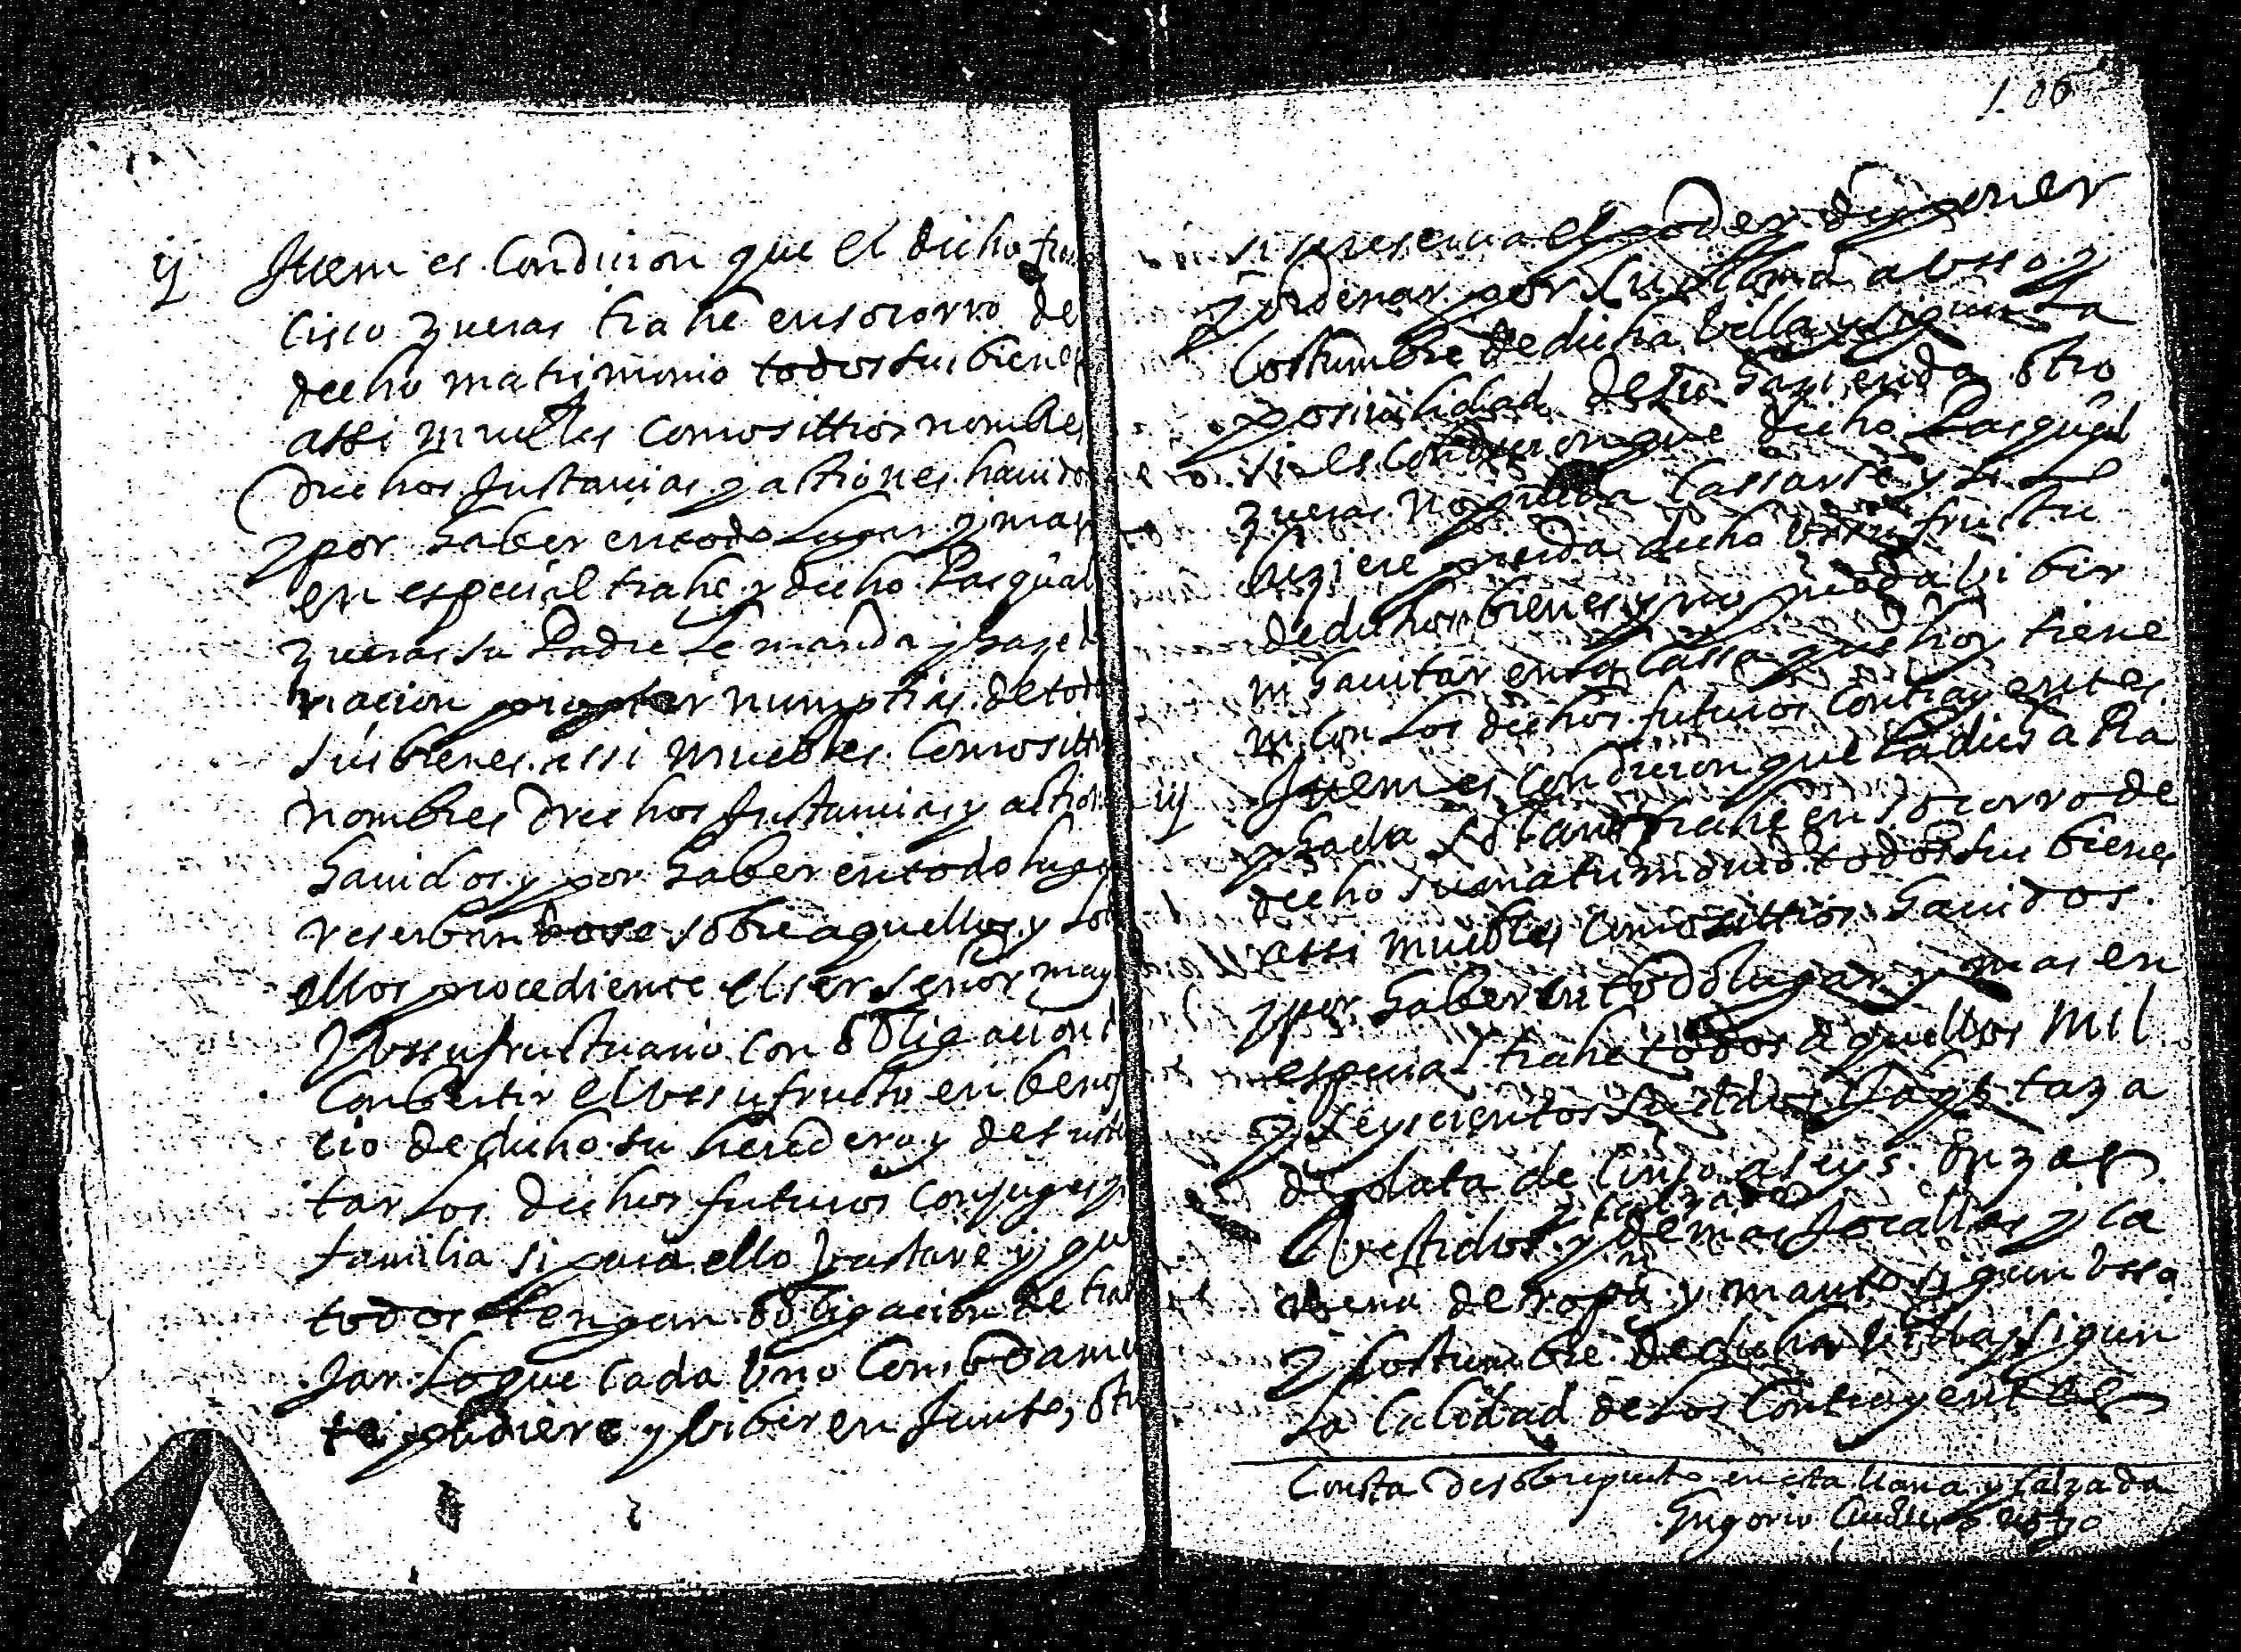 ij Ittem es Condicion que el dicho fran
cisco zueras trahe en socorro de
dicho matrimonio todos sus bienes
assi muebles como sittios nombres
drechos Instancias y actiones hauidos
y por haber en todo lugar y mas
en especial trahe y dicho Pasqual
zueras su Padre le manda y haze do
nacion propter numptias de todos
sus bienes assi muebles como sittios
nombres drechos Instancias y actiones
hauidos y por haber en todo lugar
reserbandose sobre aquellos y sobre
ellos procediente el ser señor mayor
y ussufructuario con obligacion de
conbertir el ussufructo en benefi
cio de dicho su heredero y de susten
tar los dichos futuros conjuges y
familia si para ello bastare y que
todos tengan obligacion de traba
Jar lo que cada uno comodamen
te pudiere y bibir en Junto, otro
106
si se reserua el poder disponer
y ordenar por su alma a usso y
costumbre de dicha billa y sigun la
posiuilidad de su hazienda otro
si es condicion que dicho Pasqual
zueras no pueda cassarse y si lo
hiziere pierda dicho ussufructu
de dichos bienes y no pueda bibir
ni hauitar en la cassa que hoy tiene
ni con los dichos futuros contrayentes
iij Ittem es condicion que la dicha
trahe en socorro de
dicho su matrimonio todos sus bienes
assi muebles como sittios hauidos
y por haber en todo lugar y mas en
especial trahe todos aquellos mil
y seyscientos sueldos taza
de plata de cinco a seys onzas
y calzados
Vestidos y demas Jocallas y ca
mena de ropa y manto sigun usso
y costumbre de dicha billa y sigun
la calidad de los contrayentes
Consta de sobrepuesto en esta llana y calzada
Grigorio notro